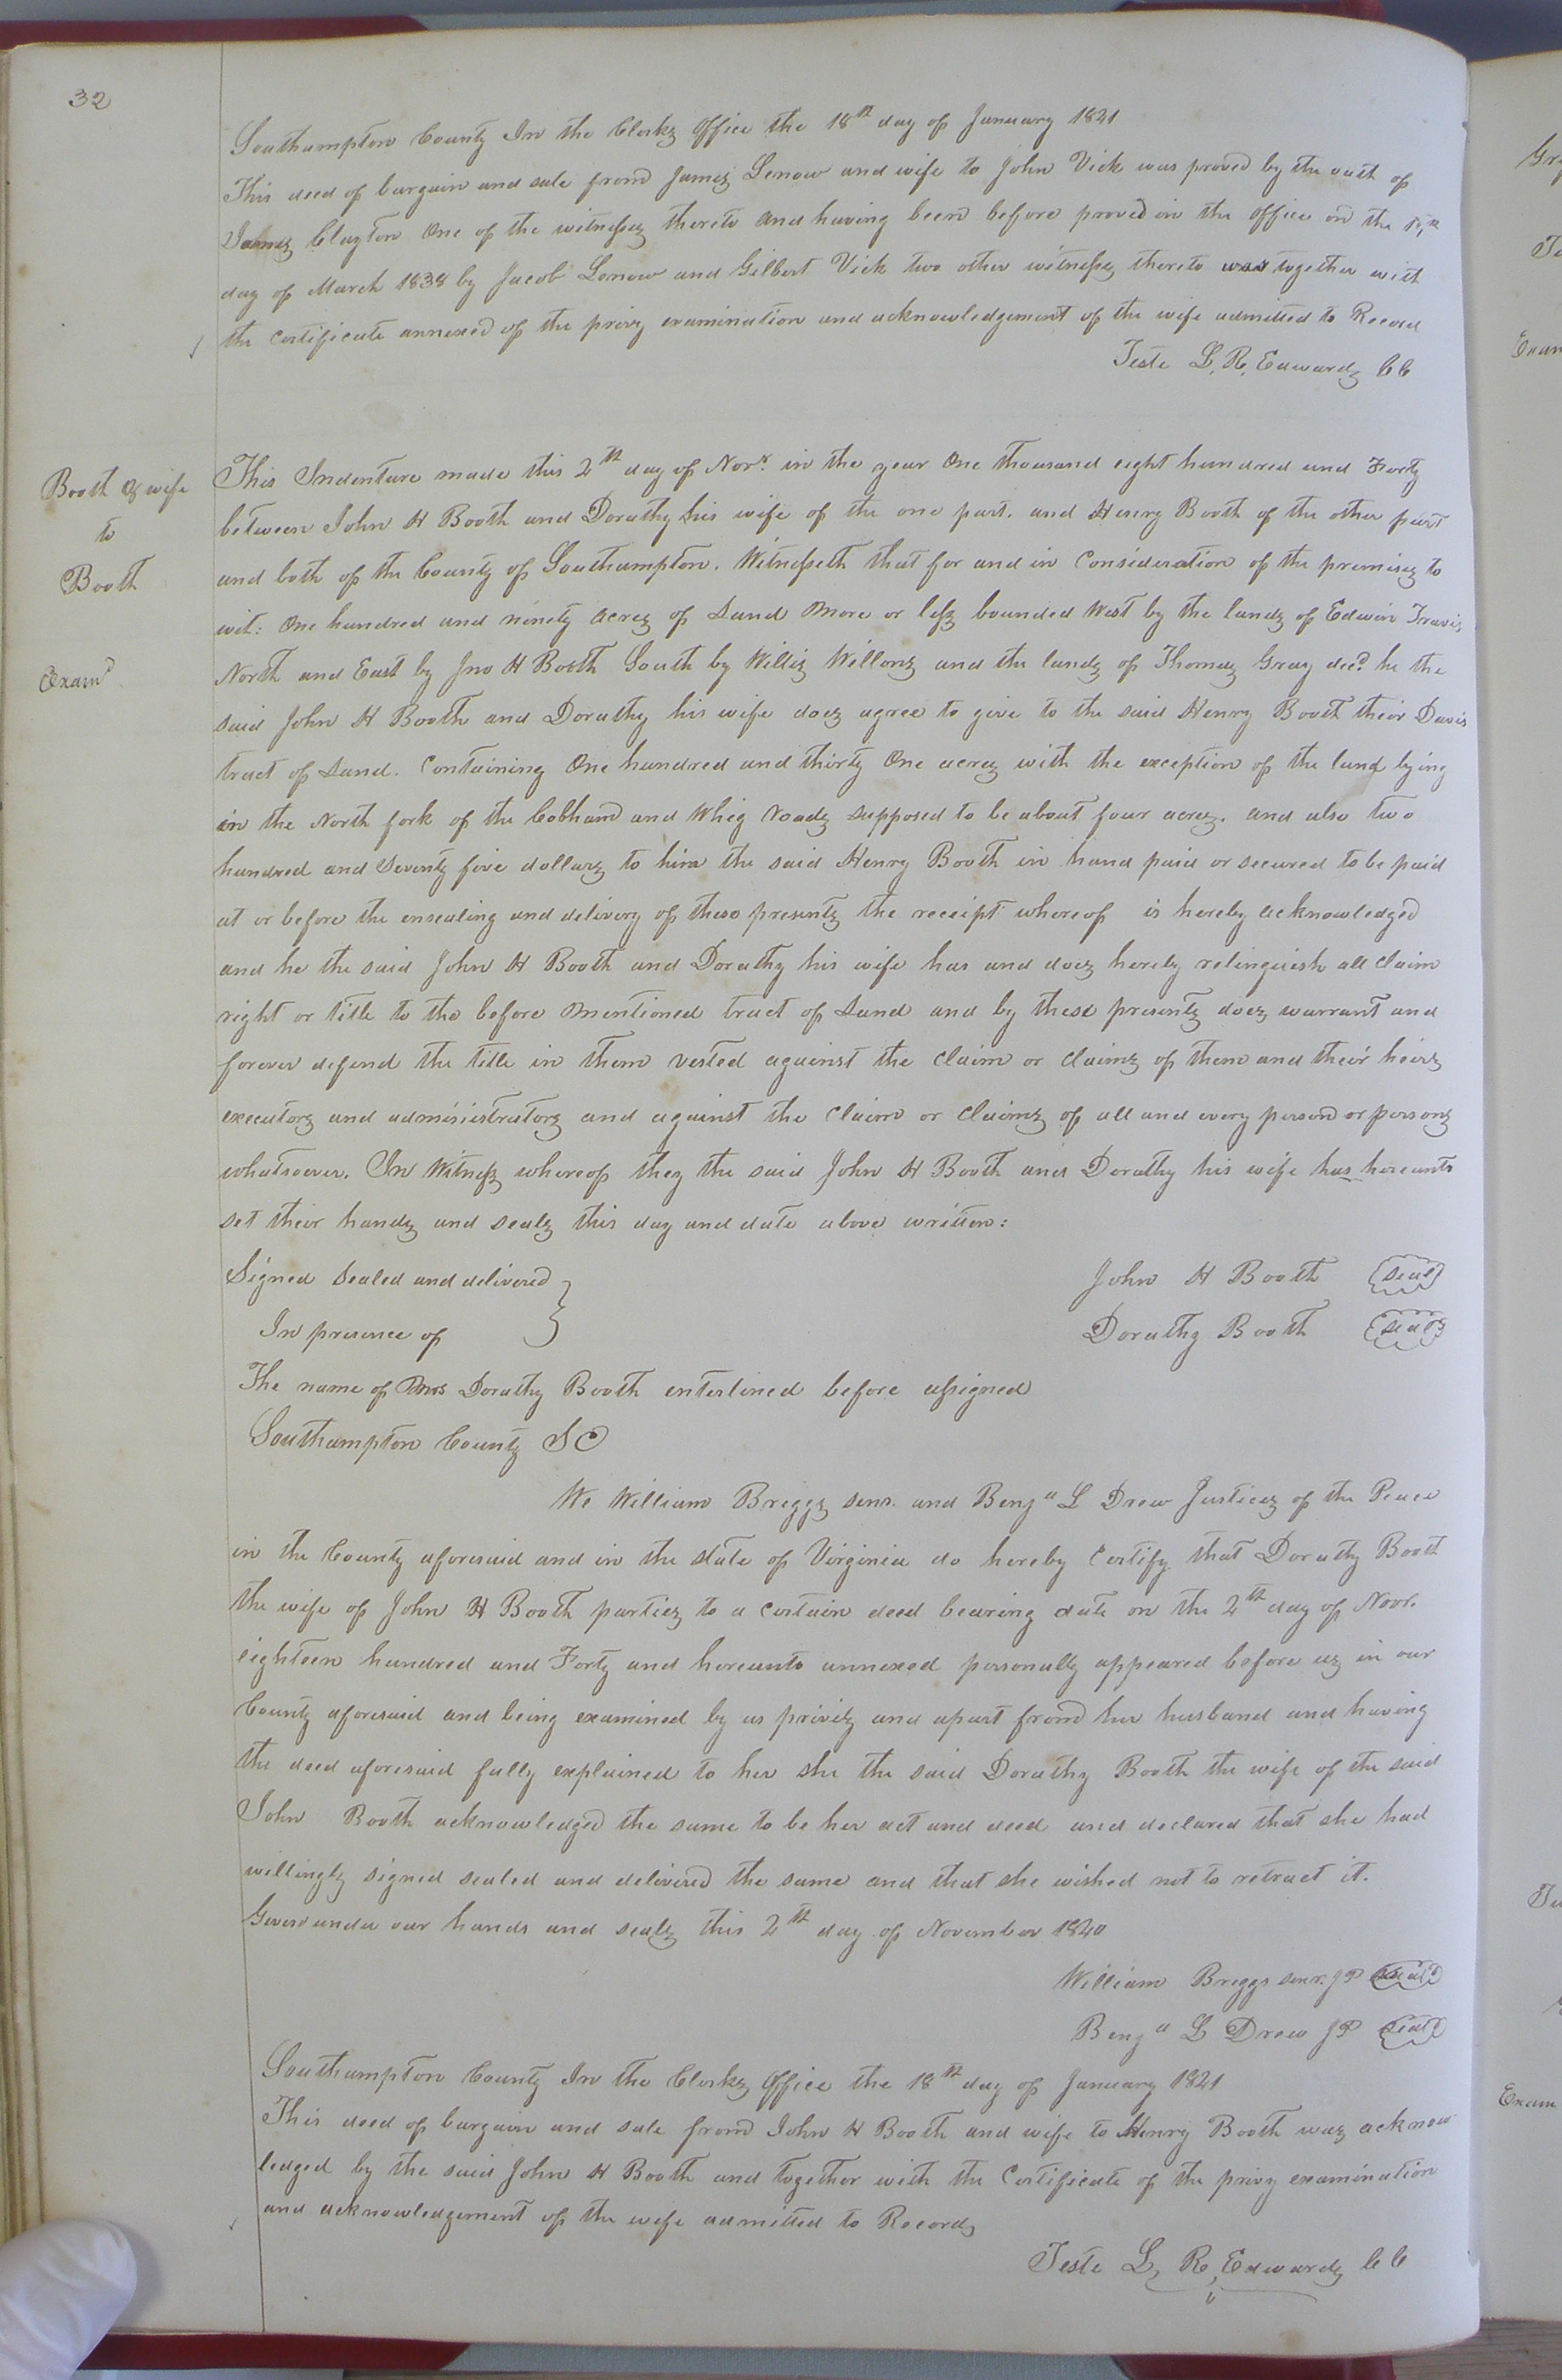 32
Southampton County In the Clerks Office the 18th day of January 1841
This deed of bargain and sale from James Lenow and wife to John Vick was proved by the oath of
James Clayton One of the witnesses thereto and having been before proved in the office on the
day of March 1838 by Jacob Lenow and Gilbert Vick two other witnesses thereto was together with
the certificate annexed of the privy examination and acknowledgement of the wife admitted to Record
Teste L. R. Edwards CC
Booth & wife
to
Booth
Examd
This Indenture made this 2th day of Novr. in the year One thousand eight hundred and Forty
between John H Booth and Dorathy his wife of the one part. and Henry Booth of the other part
and both of the County of Southampton. Witnesseth that for and in Consideration of the premises to
wit: One hundred and ninety acres of Land more or less bounded West by the lands of Edwin Travis
North and East by Jno H Booth South by Willis Willons and the lands of Thomas Gray decd. he the
said John H Booth and Dorathy his wife does agree to give to the said Henry Booth their Davis
tract of Land. Containing One hundred and thirty One acres with the exception of the land lying
in the North fork of the Cobham and Whig roads supposed to be about four acres. and also two
hundred and Seventy five dollars to him the said Henry Booth in hand paid or secured to be paid
at or before the ensealing and delivery of these presents the receipt whereof is hereby acknowledged
and he the said John H Booth and Dorathy his wife has and does hereby relinquish all claim
right or title to the before mentioned tract of Land and by these presents does warrant and
forever defend the title in them vested against the claim or claims of them and their heirs
executors and administrators and against the claim or claims of all and every person or persons
whatsoever. In Witness whereof they the said John H Booth and Dorathy his wife has hereunto
set their hands and seals this day and date above written:
Signed Sealed and delivered } John H Booth (seal)
In presence of Dorathy Booth (seal)
The name of Mrs Dorathy Booth enterlined before assigned
Southampton County SC
We William Briggs senr. and Benja L Drew Justices of the Peace
in the County aforesaid and in the state of Virginia do hereby Certify that Dorathy Booth
the wife of John H Booth parties to a certain deed bearing date on the 2th day of Novr.
eighteen hundred and Forty and hereunto annexed personally appeared before us in our
County aforesaid and being examined by us privily and apart from her husband and having
the deed aforesaid fully explained to her she the said Dorathy Booth the wife of the said
John Booth acknowledged the same to be her act and deed and declared that she had
willingly signed sealed and delivered the same and that she wished not to retract it.
Given under our hands and seals this 2th day of November 1840
William Briggs senr. JP (seal)
Benja L Drew JP (seal)
Southampton County In the Clerks Office the 18th day of January 1841
This deed of bargain and sale from John H Booth and wife to Henry Booth was acknow
ledged by the said John H Booth and together with the Certificate of the privy examination
and acknowledgement of the wife admitted to Record,
Teste L, R, Edwards CC